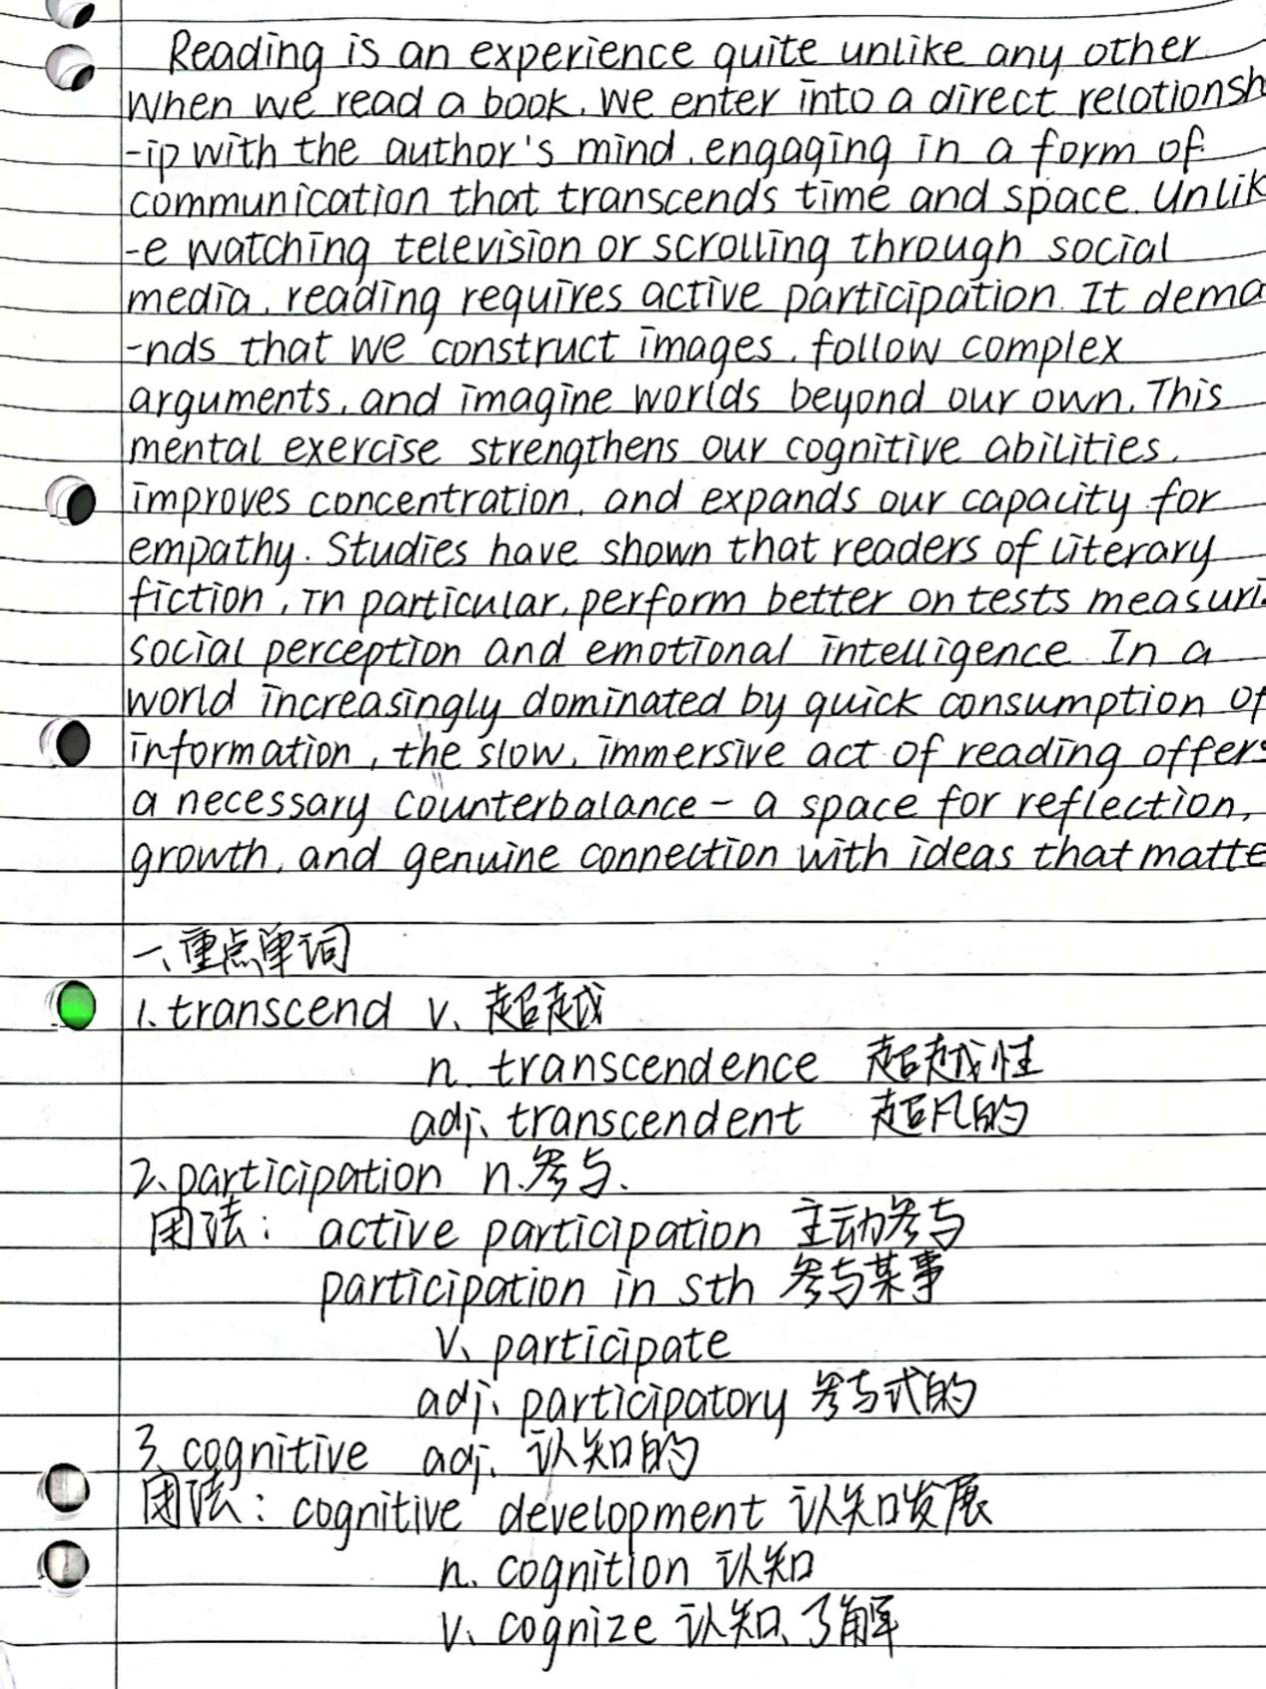 Reading is an experience quite unlike any other
When we read a book, we enter into a direct relationsh
-ip with the author's mind, engaging in a form of
communication that transcends time and space. Unlik
-e watching television or scrolling through social
media, reading requires active participation. It dema
-nds that we construct images, follow complex
arguments, and imagine worlds beyond our own. This
mental exercise strengthens our cognitive abilities,
improves concentration, and expands our capacity for
empathy. Studies have shown that readers of literary
fiction, in particular, perform better on tests measuri
social perception and emotional intelligence. In a
world increasingly dominated by quick consumption of
information, the slow, immersive act of reading offers
a necessary counterbalance – a space for reflection,
growth, and genuine connection with ideas that matte
一、重点单词
1. transcend v. 超越
n. transcendence 超越性
adj. transcendent 超凡的
2. participation n. 参与.
用法: active participation 主动参与
participation in sth 参与某事
v. participate
adj. participatory 参与式的
3. cognitive adj. 认知的
用法: cognitive development 认知发展
n. cognition 认知
v. cognize 认知、了解